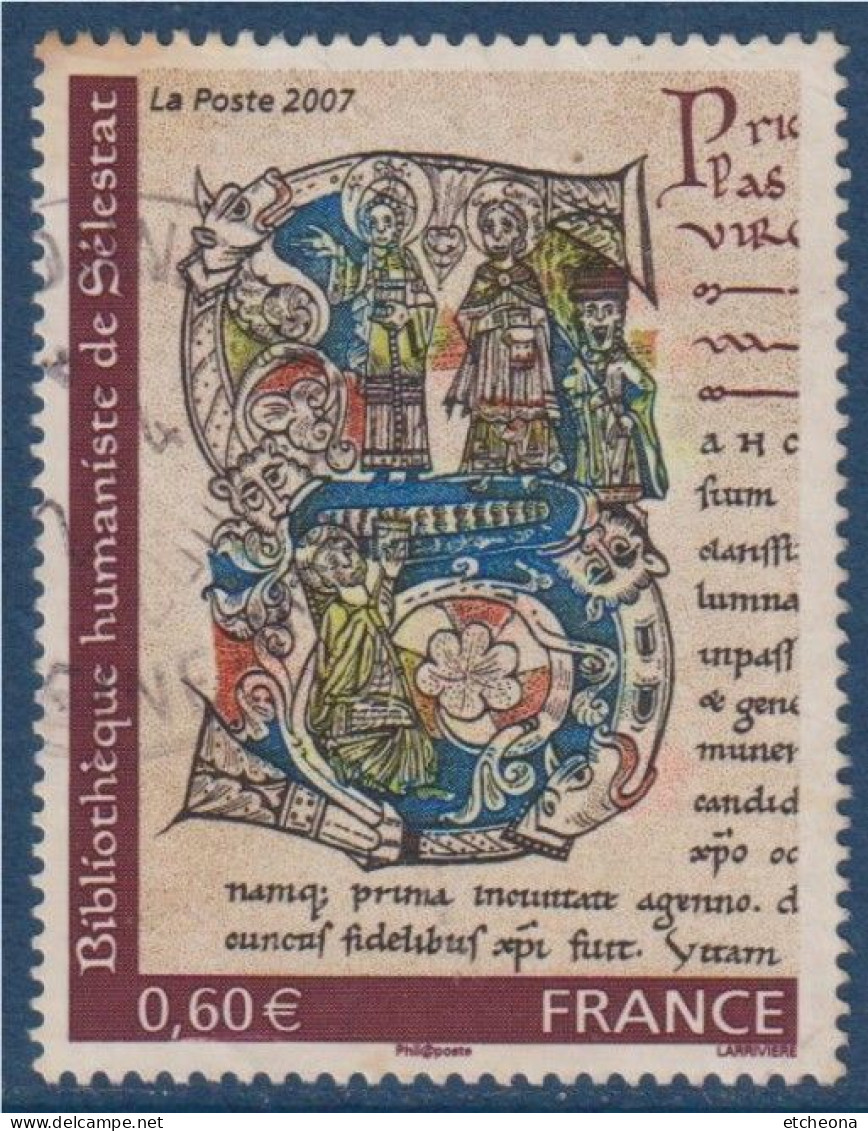 La Poste 2007
Bibliothèque humaniste de Sélestat
Pric
llas
VIRC
AHC
sium
clarissi
lumna
inpass
& gene
muner
candid
xp̄o oc
namq; prima in ciuitate agenno. d
cunctis fidelibus xp̄i fuit. Vitam
0,60€
FRANCE
Phil@poste
LARRIVIERE
etcheona